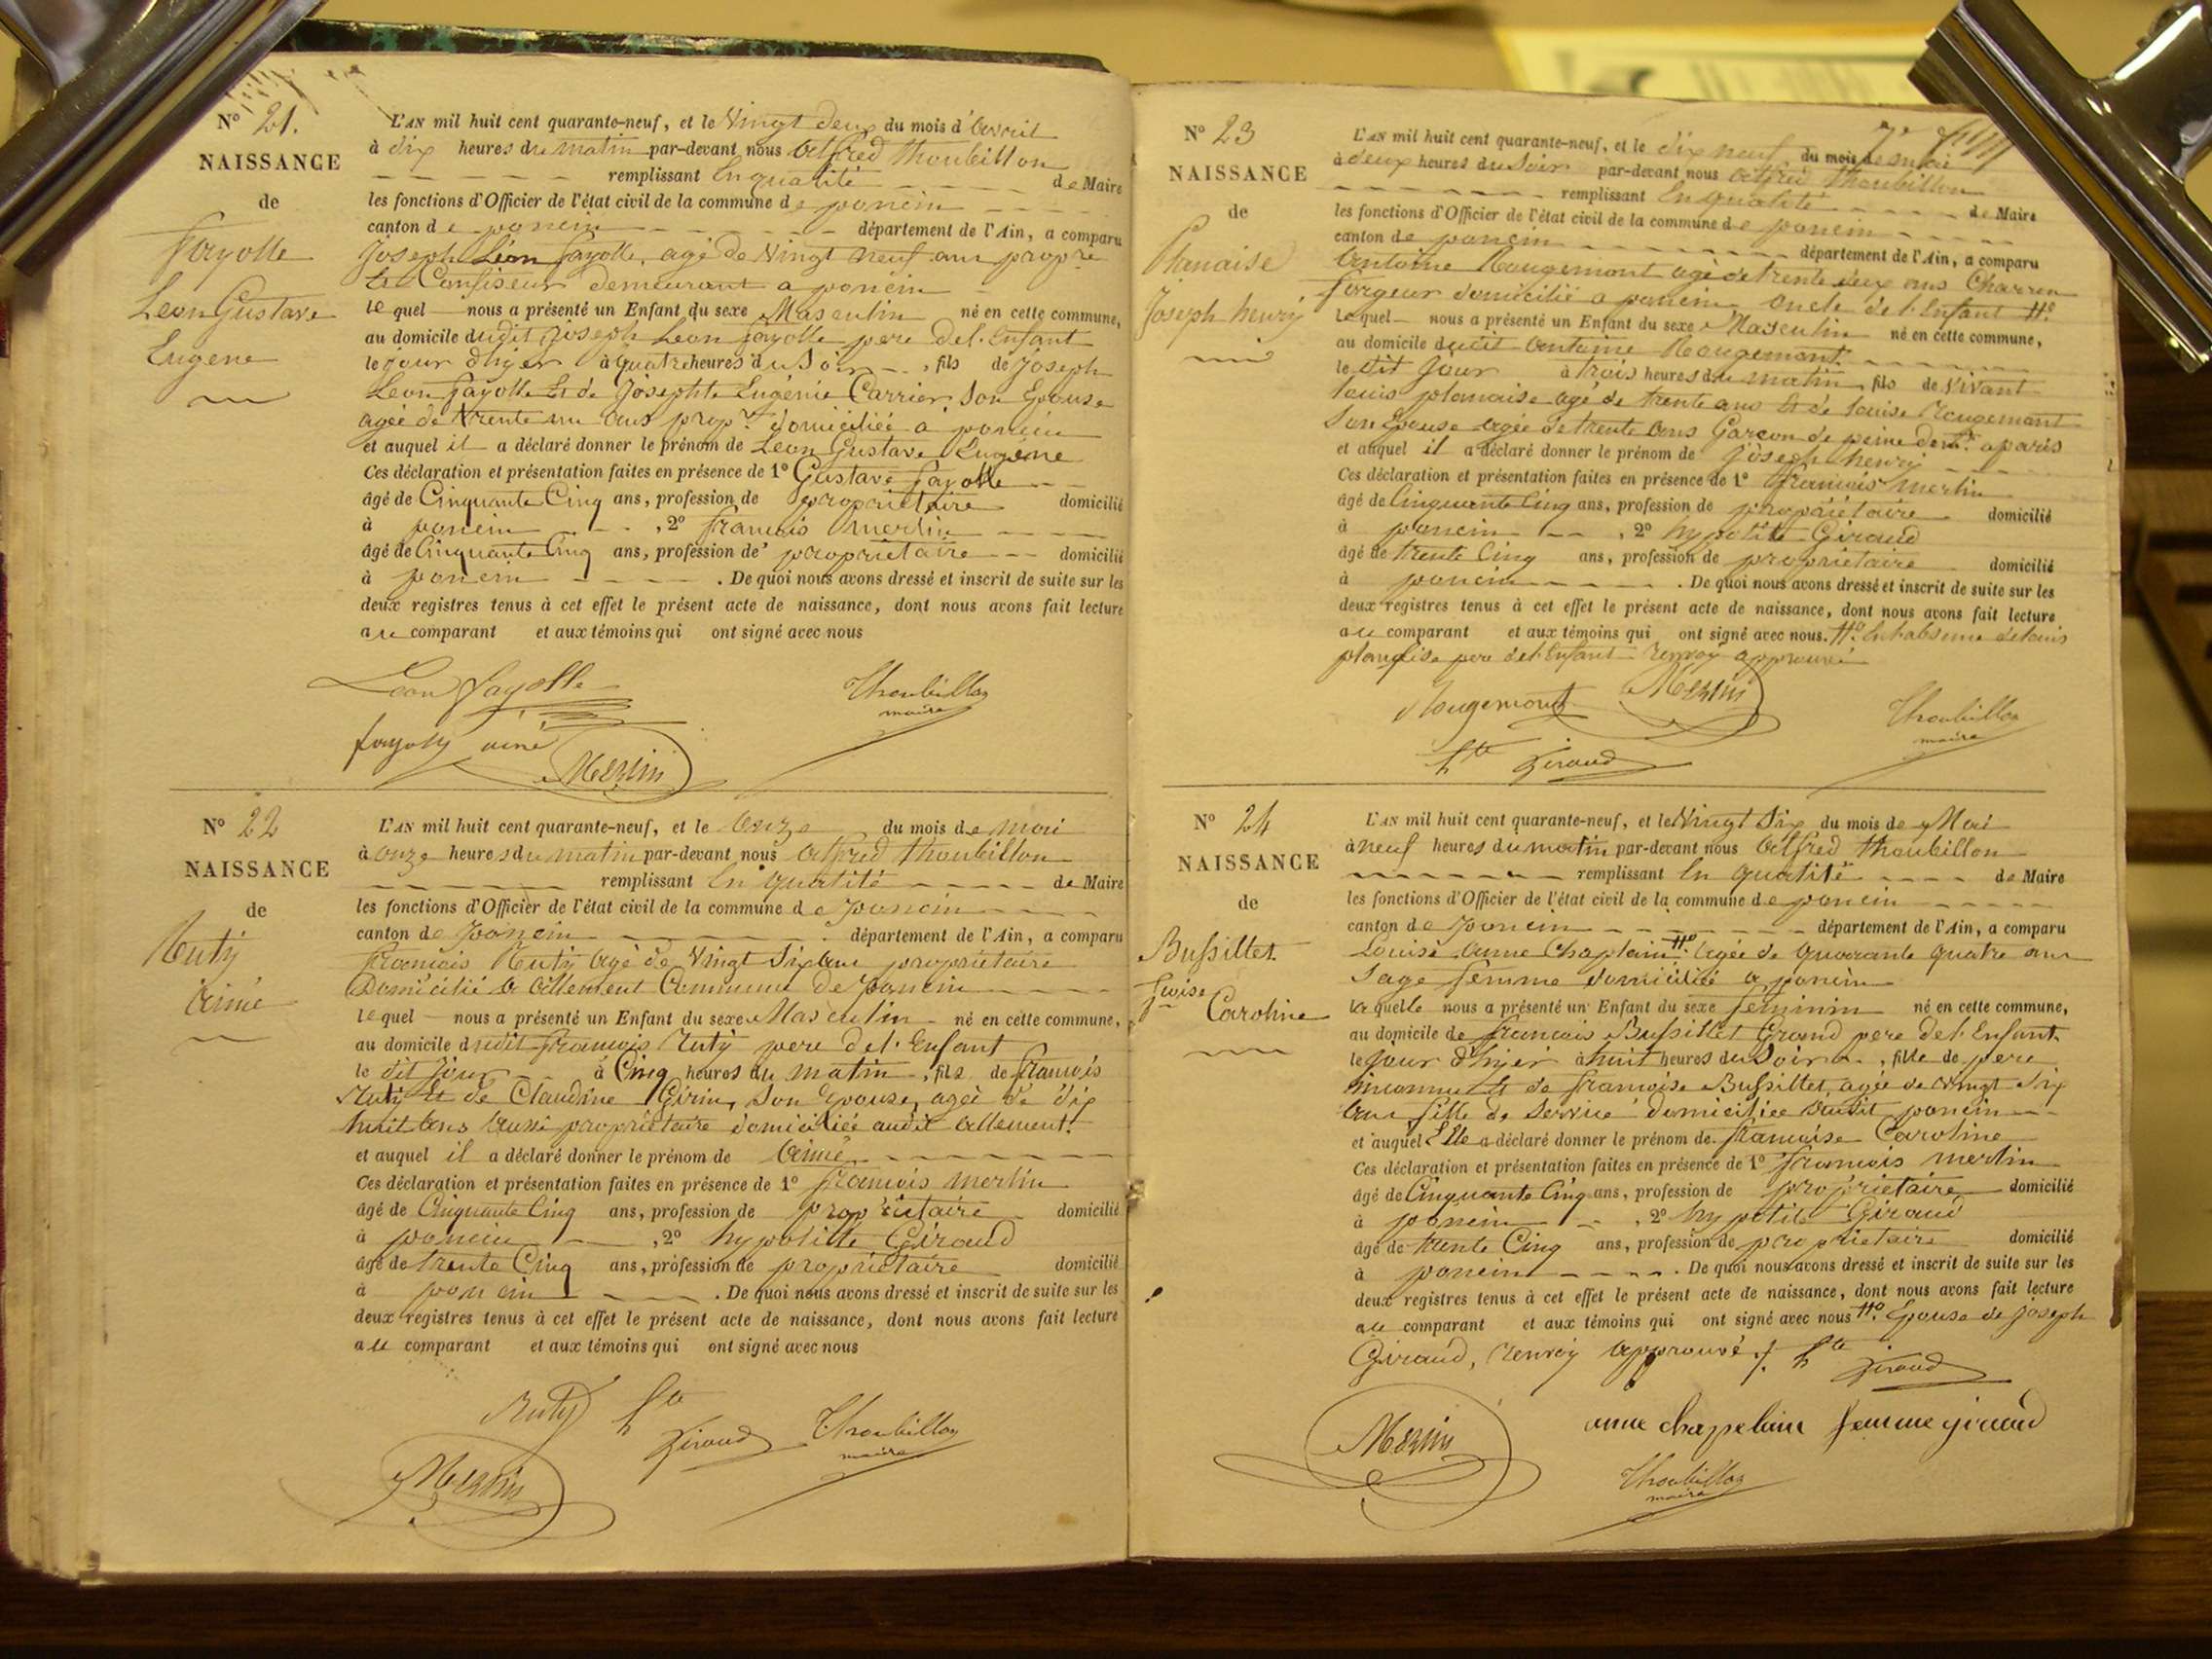 N° 21.
NAISSANCE
de
Fayolle
Léon Gustave
Eugène
L'AN mil huit cent quarante-neuf, et le Vingt deux du mois d'avril
à dix heures du matin par-devant nous alfred thoubillon
remplissant En qualité de Maire
les fonctions d'Officier de l'état civil de la commune de poncin
canton de poncin département de l'Ain, a comparu
Joseph Léon fayolle, agé de Vingt neuf ans propre
Et Confiseur demeurant a poncin
lequel nous a présenté un Enfant du sexe Masculin né en cette commune,
au domicile dudit Joseph Leon fayolle pere del'Enfant
le jour d'hyer à quatre heures du Soir, fils de Joseph
Leon fayolle Et de Josephte Eugénie Carrier Son Epouse
agée de trente un ans prop.re domiciliée a poncin
et auquel il a déclaré donner le prénom de Leon Gustave Eugène
Ces déclaration et présentation faites en présence de 1° Gustave fayolle
âgé de Cinquante Cinq ans, profession de propriétaire domicilié
à poncin, 2° francois merlin
âgé de Cinquante Cinq ans, profession de propriétaire domicilié
à poncin. De quoi nous avons dressé et inscrit de suite sur les
deux registres tenus à cet effet le présent acte de naissance, dont nous avons fait lecture
au comparant et aux témoins qui ont signé avec nous
Léon fayolle
Thoubillon
maire
fayolle ainé
Merlin
N° 22
NAISSANCE
de
Ruty
aimé
L'AN mil huit cent quarante-neuf, et le onze du mois de mai
à onze heures du matin par-devant nous alfred thoubillon
remplissant En qualité de Maire
les fonctions d'Officier de l'état civil de la commune de poncin
canton de poncin département de l'Ain, a comparu
francois Ruty agé de Vingt Six ans propriétaire
Domicilié a allement Commune de poncin
lequel nous a présenté un Enfant du sexe Masculin né en cette commune,
au domicile dudit francois Ruty pere del'Enfant
le dit jour à Cinq heures du matin, fils de francois
Ruty Et de Claudine Girin, Son Epouse, agée de dix
huit ans aussi propriétaire domiciliée audit allement.
et auquel il a déclaré donner le prénom de aimé
Ces déclaration et présentation faites en présence de 1° francois merlin
âgé de Cinquante Cinq ans, profession de propriétaire domicilié
à poncin, 2° hypolitte Giraud
âgé de trente Cinq ans, profession de propriétaire domicilié
à poncin. De quoi nous avons dressé et inscrit de suite sur les
deux registres tenus à cet effet le présent acte de naissance, dont nous avons fait lecture
au comparant et aux témoins qui ont signé avec nous
Ruty hte Giraud Thoubillon
maire
Merlin
N° 23
NAISSANCE
de
Planaise
Joseph henry
L'AN mil huit cent quarante-neuf, et le dix neuf du mois de mai
à deux heures du Soir par-devant nous alfred thoubillon
remplissant En qualité de Maire
les fonctions d'Officier de l'état civil de la commune de poncin
canton de poncin département de l'Ain, a comparu
antoine Rougemont agé de trente deux ans Charron
forgeur domicilié a poncin oncle de l'Enfant
lequel nous a présenté un Enfant du sexe Masculin né en cette commune,
au domicile dudit antoine Rougemont.
le dit jour à trois heures du matin, fils de Vivant
louis planaise agé de trente ans Et de louise Rougemont
Son Epouse agée de trente ans Garçon de peine demt. a paris
et auquel il a déclaré donner le prénom de joseph henry
Ces déclaration et présentation faites en présence de 1° francois merlin
âgé de Cinquante Cinq ans, profession de propriétaire domicilié
à poncin, 2° hypolite Giraud
âgé de trente Cinq ans, profession de propriétaire domicilié
à poncin. De quoi nous avons dressé et inscrit de suite sur les
deux registres tenus à cet effet le présent acte de naissance, dont nous avons fait lecture
au comparant et aux témoins qui ont signé avec nous. En l'absence de louis
planaise pere del'Enfant renvoy approuvé
Rougemont Merlin
Thoubillon
maire
hte Giraud
N° 24
NAISSANCE
de
Bussillet
fcoise
Caroline
L'AN mil huit cent quarante-neuf, et le Vingt Six du mois de Mai
à neuf heures du matin par-devant nous alfred thoubillon
remplissant En qualité de Maire
les fonctions d'Officier de l'état civil de la commune de poncin
canton de poncin département de l'Ain, a comparu
Louise anne Chaplain agée de quarante quatre ans
Sage femme domiciliée a poncin
laquelle nous a présenté un Enfant du sexe féminin né en cette commune,
au domicile de francois Bussillet Grand pere del'Enfant
le jour d'hyer à huit heures du Soir, fille de pere
inconnu Et de francoise Bussillet, agée de vingt Six
ans fille de Service domiciliée audit poncin
et auquel Elle a déclaré donner le prénom de francoise Caroline
Ces déclaration et présentation faites en présence de 1° francois merlin
âgé de Cinquante Cinq ans, profession de propriétaire domicilié
à poncin, 2° hypolite Giraud
âgé de trente Cinq ans, profession de propriétaire domicilié
à poncin. De quoi nous avons dressé et inscrit de suite sur les
deux registres tenus à cet effet le présent acte de naissance, dont nous avons fait lecture
au comparant et aux témoins qui ont signé avec nous Epouse de Joseph
Giraud, renvoy approuvé hte Giraud
Merlin
anne chapelain femme giraud
Thoubillon
maire